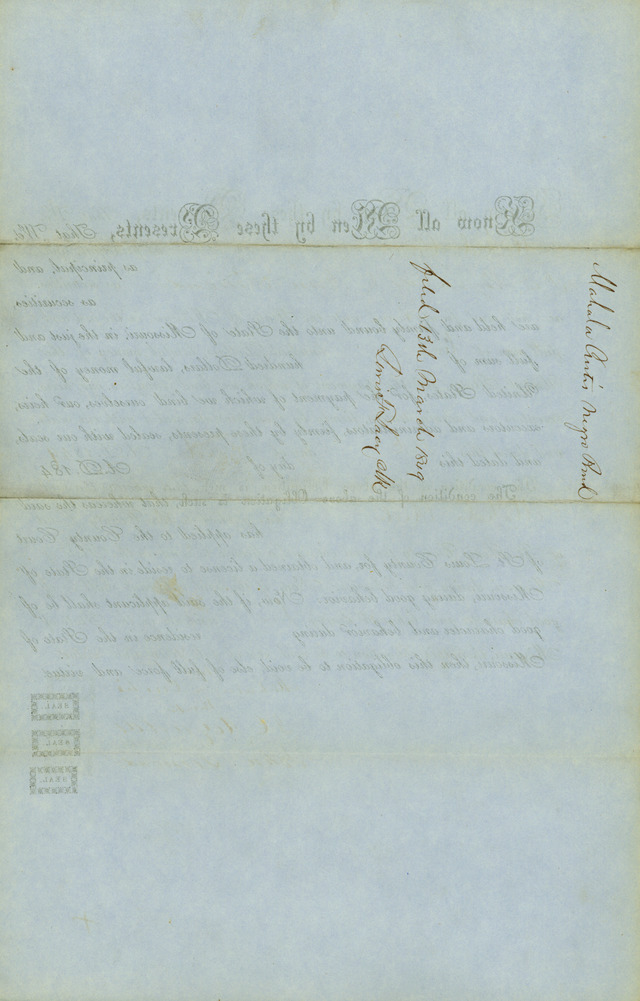 Mahala Austin Negro Bond
filed 13th March 1849
Know all Men by these Presents, That We,
as principal, and
as securities
are held and firmly bound unto the State of Missouri, in the just and
full sum of hundred Dollars, lawful money of the
United States, for the payment of which we bind ourselves, our heirs,
executors and administrators, firmly by these presents, sealed with our seals,
and dated this day of A. D. 184
The condition of the above Obligation is such, that whereas the said
has applied to the County Court
of St. Louis County for, and obtained a license to reside in the State of
Missouri, during good behavior. Now, if the said applicant shall be of
good character and behavior during residence in the State of
Missouri, then this obligation to be void, else of full force and virtue.
SEAL
SEAL
SEAL